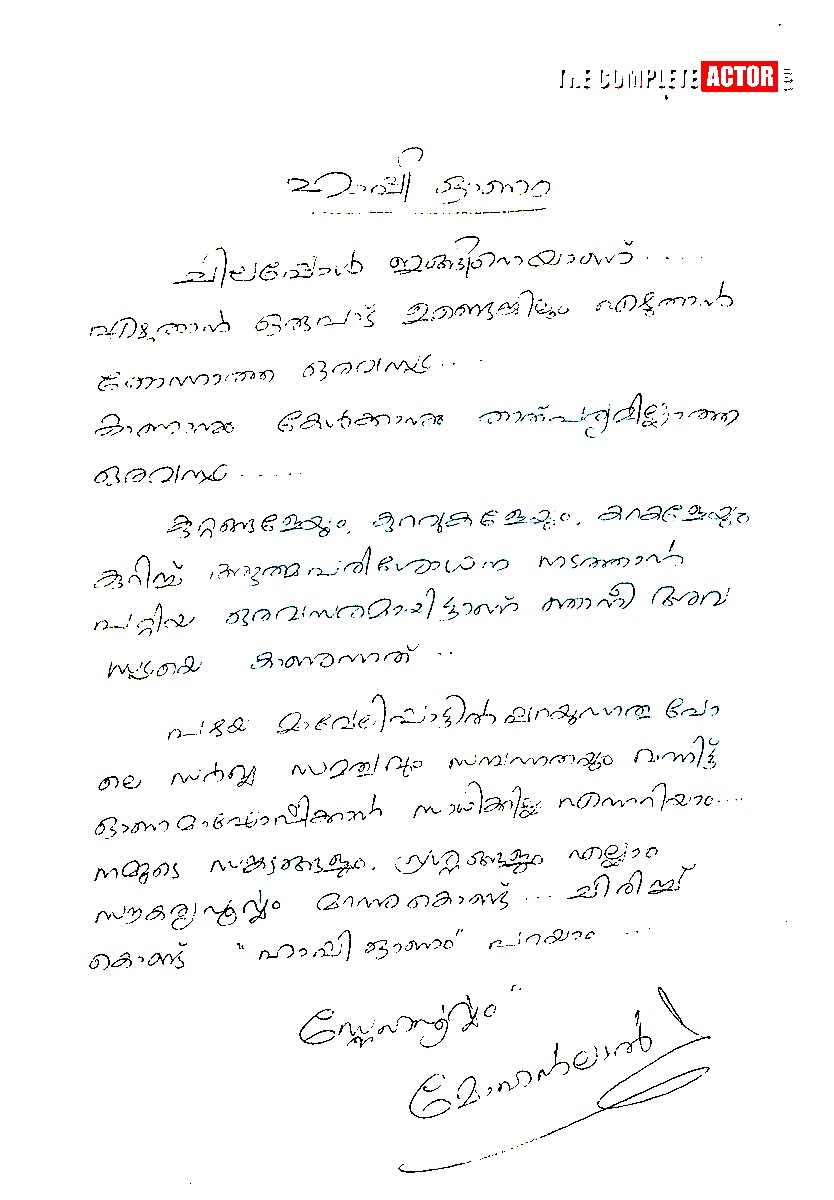 THE COMPLETE ACTOR
ഹാപ്പി ഓണം
ചിലപ്പോൾ ഇങ്ങിനെയാണ് .....
എഴുതാൻ ഒരുപാട് ഉണ്ടെങ്കിലും എഴുതാൻ
തോന്നാത്ത ഒരവസ്ഥ ....
കാണാനും കേൾക്കാനും താത്പര്യമില്ലാത്ത
ഒരവസ്ഥ ......
കുറ്റങ്ങളേയും, കുറവുകളേയും, കറകളേയും
കുറിച്ച് ആത്മപരിശോധന നടത്താൻ
പറ്റിയ ഒരവസരമായിട്ടാണ് ഞാൻ ഈ അവ
സ്ഥയെ കാണുന്നത് ..
പഴയ മാവേലിപ്പാട്ടിൽ പറയുന്നതു പോ
ലെ സർവ്വ സമത്വവും സമ്പന്നതയും വന്നിട്ട്
ഓണമാഘോഷിക്കാൻ സാധിക്കില്ല എന്നറിയാം....
നമ്മുടെ സങ്കടങ്ങളും, പ്രശ്നങ്ങളും എല്ലാം
സൗകര്യപൂർവ്വം മറന്നുകൊണ്ട് ... ചിരിച്ച്
കൊണ്ട് "ഹാപ്പി ഓണം" പറയാം ...
സ്നേഹപൂർവ്വം
മോഹൻലാൽ